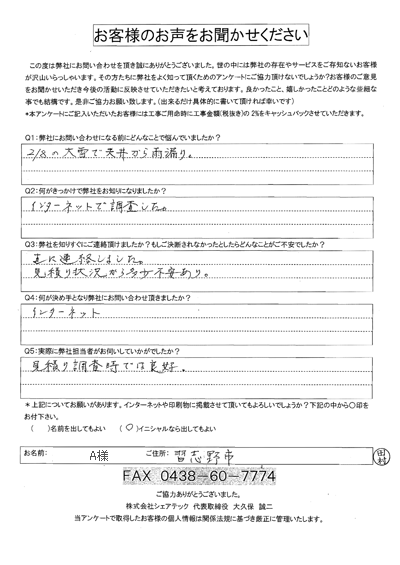 お客様のお声をお聞かせください
この度は弊社にお問い合わせを頂き誠にありがとうございました。世の中には弊社の存在やサービスをご存知ないお客様
が沢山いらっしゃいます。その方たちに弊社をよく知って頂くためのアンケートにご協力頂けないでしょうか?お客様のご意見
をお聞かせいただき今後の活動に反映させていただきたいと考えております。良かったこと、嬉しかったことどのような些細な
事でも結構です。是非ご協力お願い致します。(出来るだけ具体的に書いて頂ければ幸いです)
*本アンケートにご記入いただいたお客様には工事ご用命時に工事金額(税抜き)の2%をキャッシュバックさせていただきます。
Q1:弊社にお問い合わせになる前にどんなことで悩んでいましたか?
2/8の大雪で天井から雨漏り。
Q2:何がきっかけで弊社をお知りになりましたか?
インターネットで調査した。
Q3:弊社を知りすぐにご連絡頂けましたか?もしご決断されなかったとしたらどんなことがご不安でしたか?
直に連絡しました。
見積り状況から多少不安あり。
Q4:何が決め手となり弊社にお問い合わせ頂きましたか?
インターネット
Q5:実際に弊社担当者がお伺いしていかがでしたか?
見積り調査時では良好。
*上記についてお願いがあります。インターネットや印刷物に掲載させて頂いてもよろしいでしょうか?下記の中から〇印を
お付下さい。
( )名前を出してもよい (○)イニシャルなら出してもよい
お名前: A様 ご住所: 習志野市
FAX 0438-60-7774
ご協力ありがとうございました。
株式会社シェアテック 代表取締役 大久保 誠二
当アンケートで取得したお客様の個人情報は関係法規に基づき厳正に管理いたします。